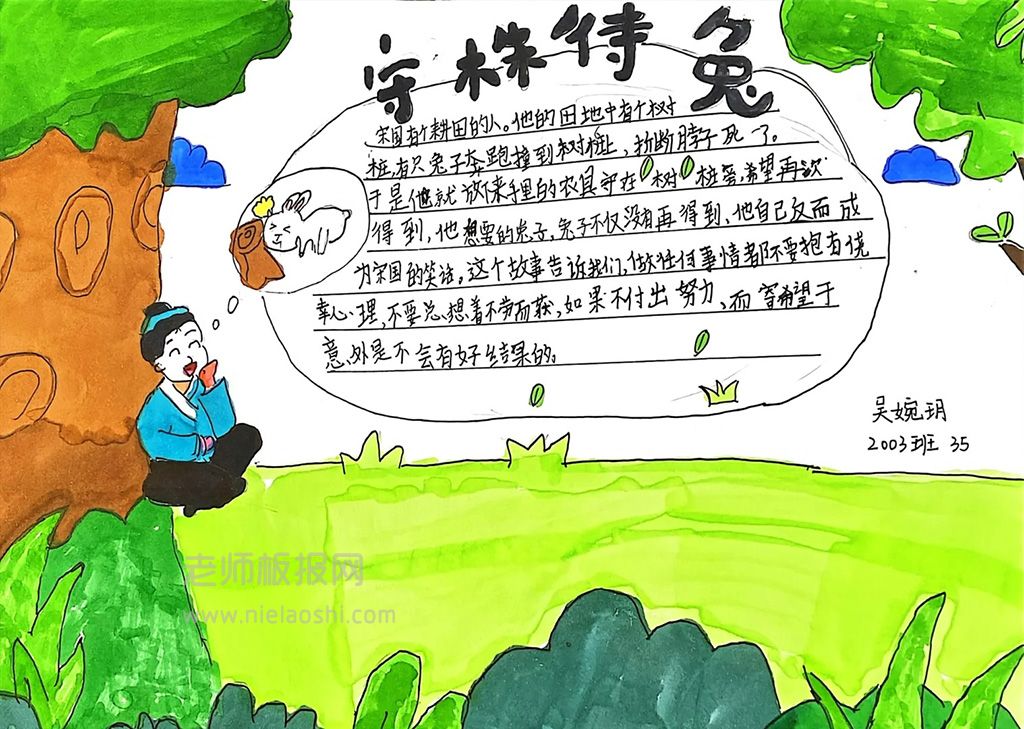 守株待兔
宋国有个耕田的人。他的田地中有个树
桩,有只兔子奔跑撞到树桩上,折断脖子死了。
于是他就放下来手里的农具守在树桩旁,希望再次
得到,他想要的兔子,兔子不仅没有再得到,他自己反而成
为宋国的笑话。这个故事告诉我们,做任何事情都不要抱有侥
幸心理,不要总想着不劳而获,如果不付出努力,而等希望于
意外是不会有好结果的。
吴婉玥
2003班 35
老师板报网
www.nielaoshi.com